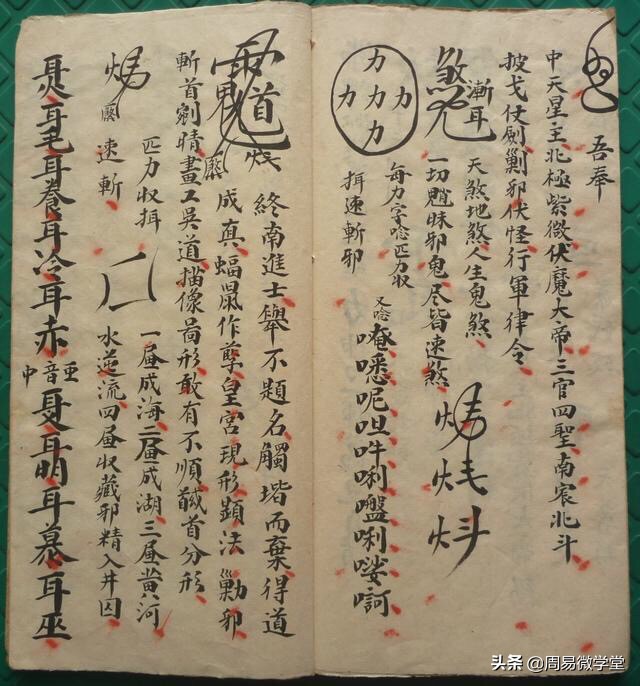 吾奉
中天星主北極紫微伏魔大帝三官四聖南宸北斗
披戈仗劍剿邪伏怪行軍律令
漸耳
天煞地煞人生鬼煞
一切魈昧邪鬼尽皆速煞
力力力力力
每力字唸匹力収
挕速斬邪
又唸唵㗭呢呾吽唎囕唎娑訶
終南進士舉不題名觸堦而棄得道
成真蝠鼠作孽皇宮現形顕法剿邪
斬首剜睛畫工吳道描像啚形敢有不順馘首分形
匹力収挕
一画成海二画成湖三画黄河
速斬
水逆流四画収藏邪精入井囚
耳毛耳養耳冷耳赤
中音亜
耳明耳慕耳巫
头条 @周易微学堂